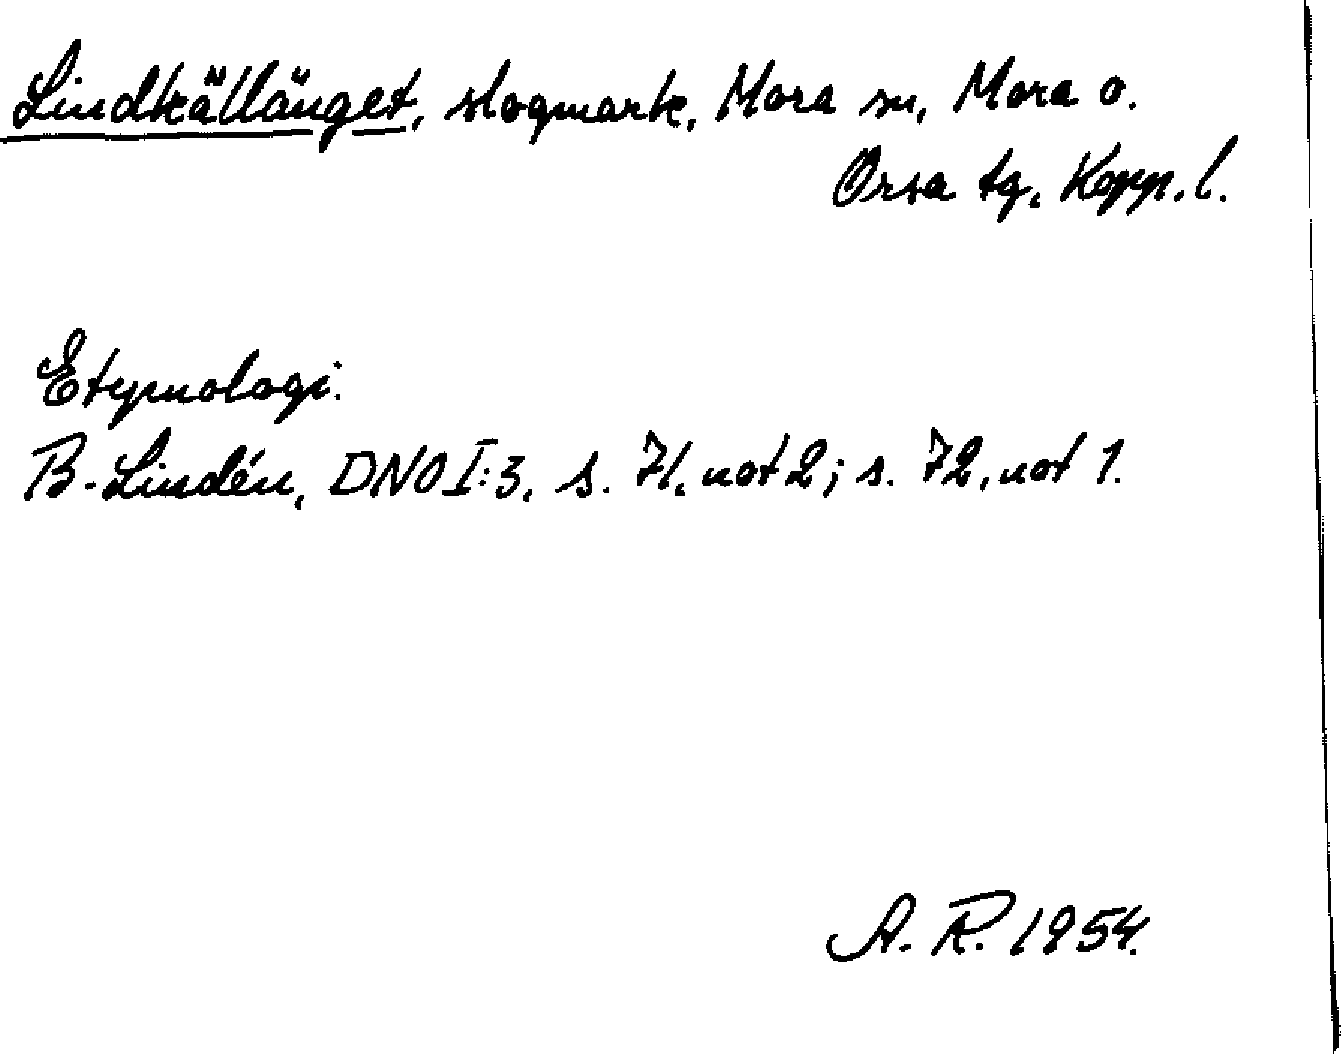 Lindkällänget, slogmark, Mora sn, Mora o.
Orsa tg, Kopp. l.
Etymologi.
B. Lindén, DNO I:3, s. 71, not 2; s. 72, not 1.
A. R. 1954.